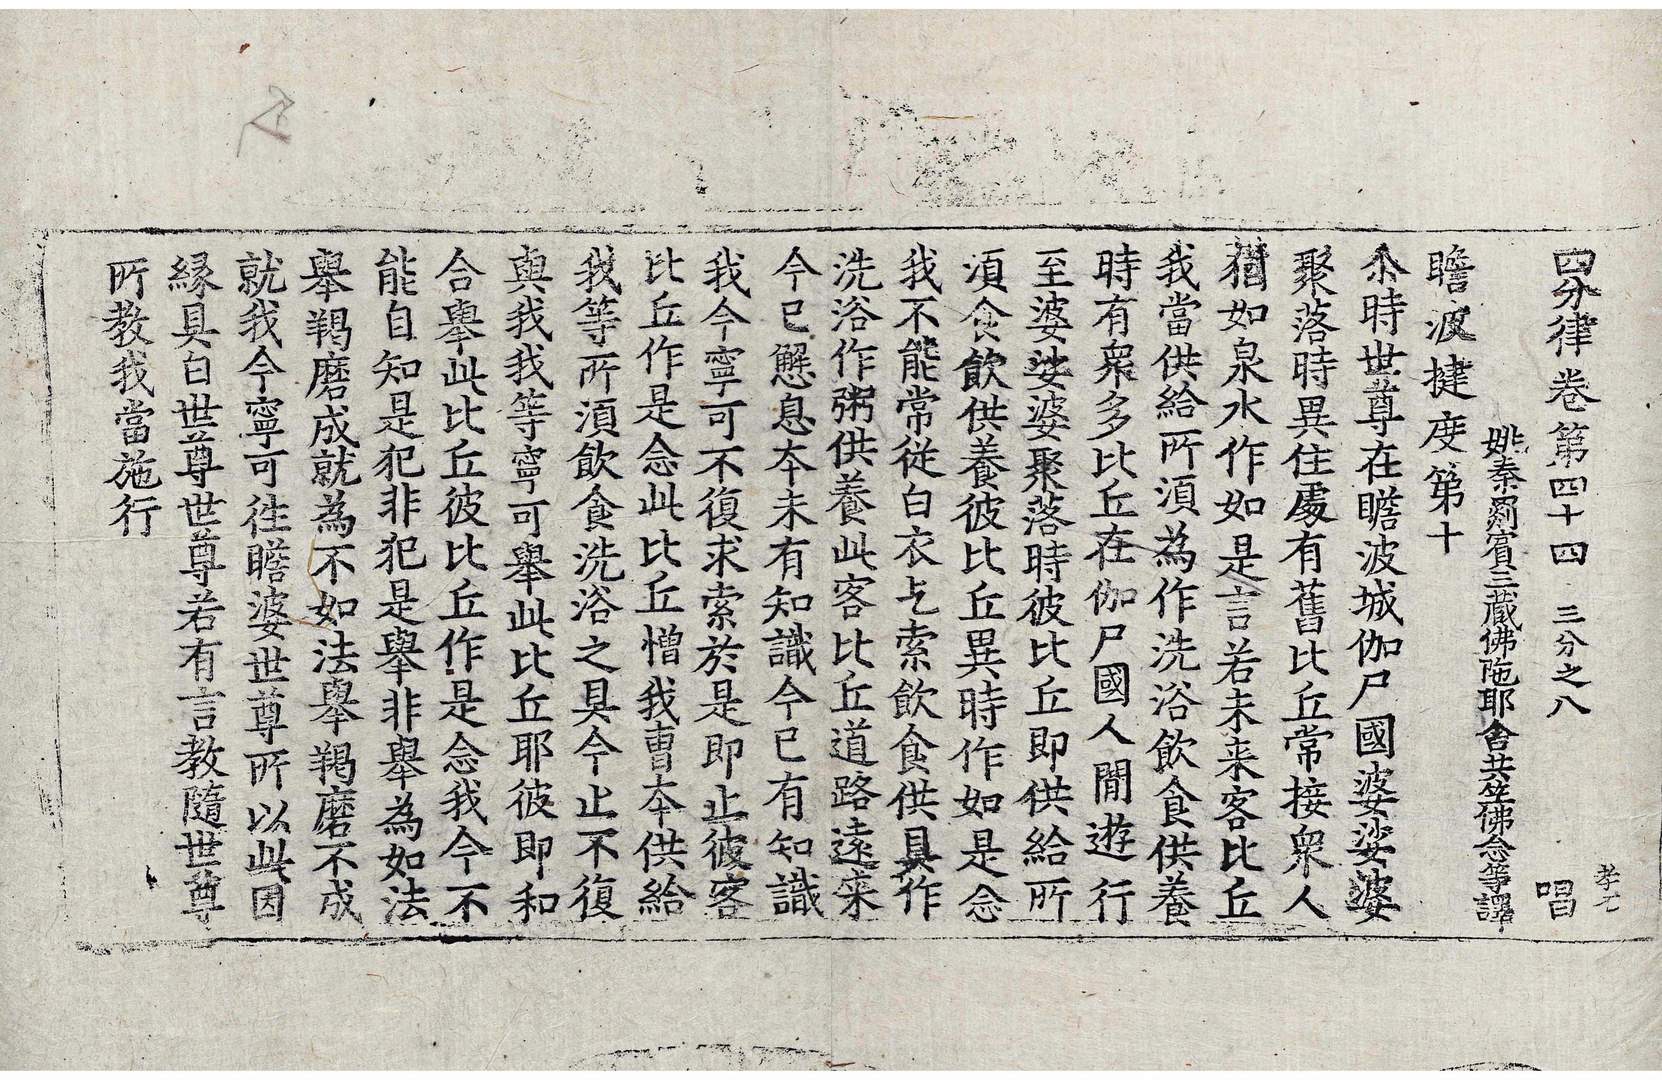 四分律卷第四十四 三分之八 唱
姚秦罽賓三藏佛陁耶舍共竺佛念等譯
瞻波揵度第十
尒時世尊在瞻波城伽尸國婆娑婆
聚落時異住處有舊比丘常接衆人
猶如泉水作如是言若未来客比丘
我當供給所湏為作洗浴飲食供養
時有衆多比丘在伽尸國人閒遊行
至婆娑婆聚落時彼比丘即供給所
湏食飲供養彼比丘異時作如是念
我不能常從白衣乞索飲食供具作
洗浴作粥供養此客比丘道路遠来
今已懈息本未有知識今已有知識
我今寧可不復求索於是即止彼客
比丘作是念此比丘憎我曹本供給
我等所湏飲食洗浴之具今止不復
與我我等寧可舉此比丘耶彼即和
合舉此比丘彼比丘作是念我今不
能自知是犯非犯是舉非舉為如法
舉羯磨成就為不如法舉羯磨不成
就我今寧可徃瞻婆世尊所以此因
緣具白世尊世尊若有言教隨世尊
所教我當施行